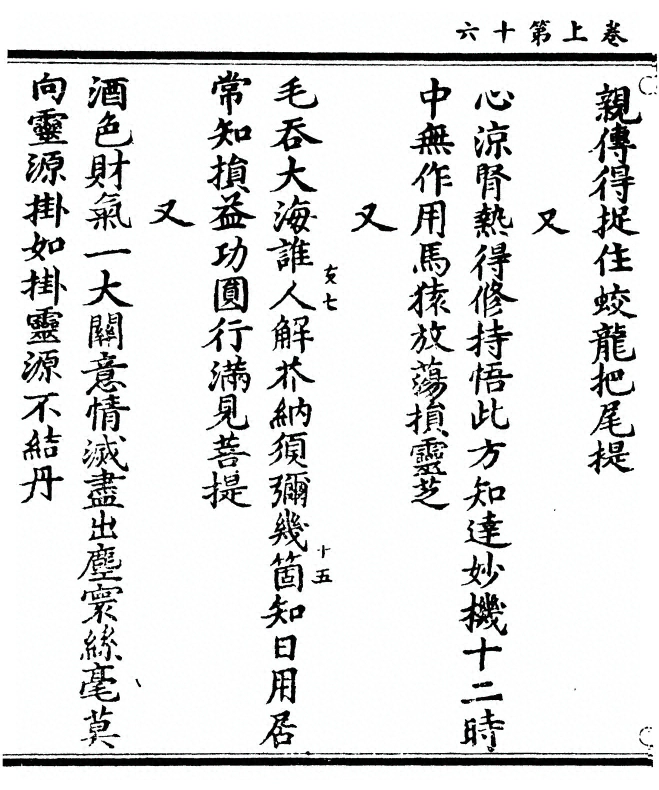 卷上第十六
親傳得捉住蛟龍把尾提
又
心涼腎熱得修持悟此方知達妙機十二時
中無作用馬猿放蕩損靈芝
又
友七
十五
毛吞大海誰人解芥納須彌幾箇知日用居
常知損益功圓行滿見菩提
又
酒色財氣一大關意情滅盡出塵寰絲毫莫
向靈源掛如掛靈源不結丹